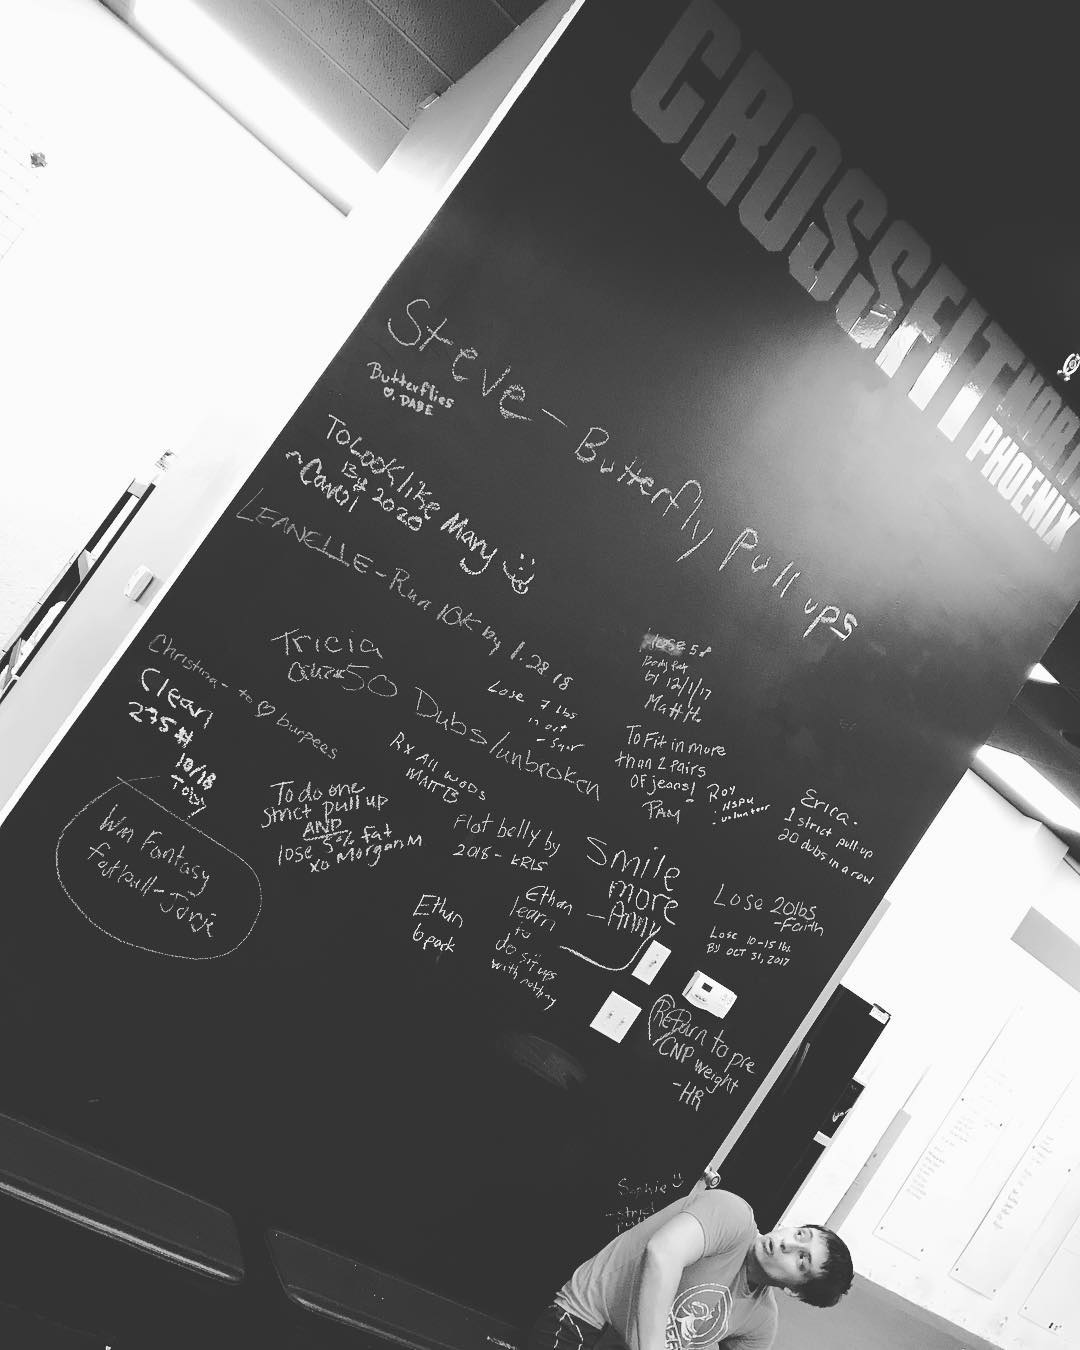 CROSSFIT
PHOENIX
Steve - Butterfly Pull ups
Butterflies
♡, DABE
To Look like Mary
By 2020
~ Carol
LEANELLE - Run 10K by 1.28 18
Tricia
50 Dubs/unbroken
Christina - to ♡ burpees
Clean
275#
10/18
Toby
Wm Fantasy
football - Jorje
To do one
strict pull up
AND
lose 5% fat
xo Morgan M
Rx All WODS
MATT B
Lose 7 lbs
in oct
Flat belly by
2018 - KRIS
Ethan
6 pack
Ethan
learn
to
do sit ups
with nothing
Body Fat
by 12/1/17
Matt H.
To Fit in more
than 2 pairs
of jeans!
PAM
Roy
• HSPU
• volunteer
Smile
more
- Anny
Erica -
1 strict pull up
20 dubs in a row
Lose 20lbs
- Faith
Lose 10-15 lbs.
By OCT 31, 2017
Return to pre
CNP weight
- HR
Sophie
- strict